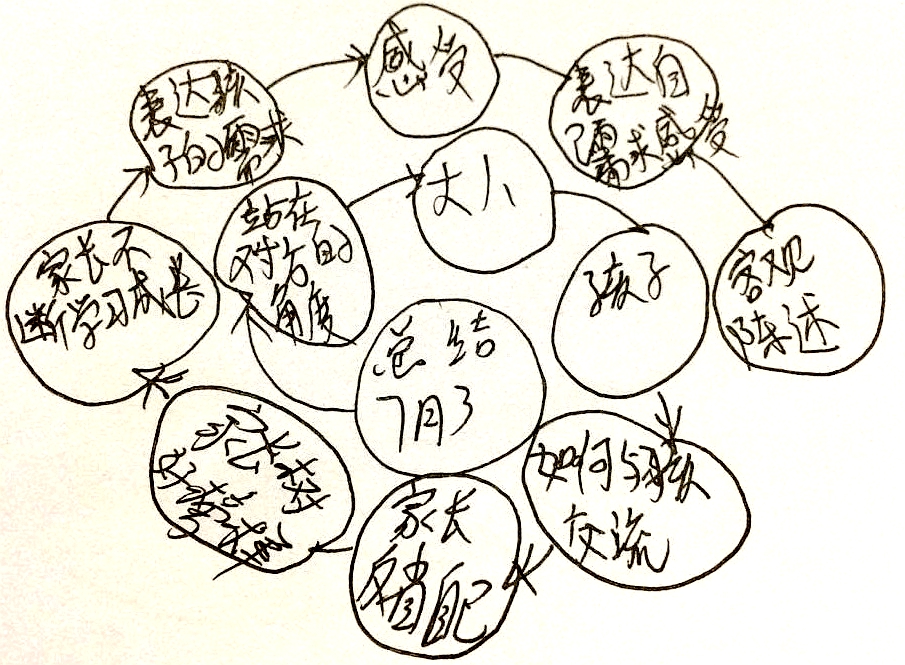 感受
表达孩
子的需求
表达自
己需求感受
站在
对方的
角度
丈人
家长不
断学习成长
孩子
客观
陈述
总结
7月3
如何与孩
交流
家长
省配